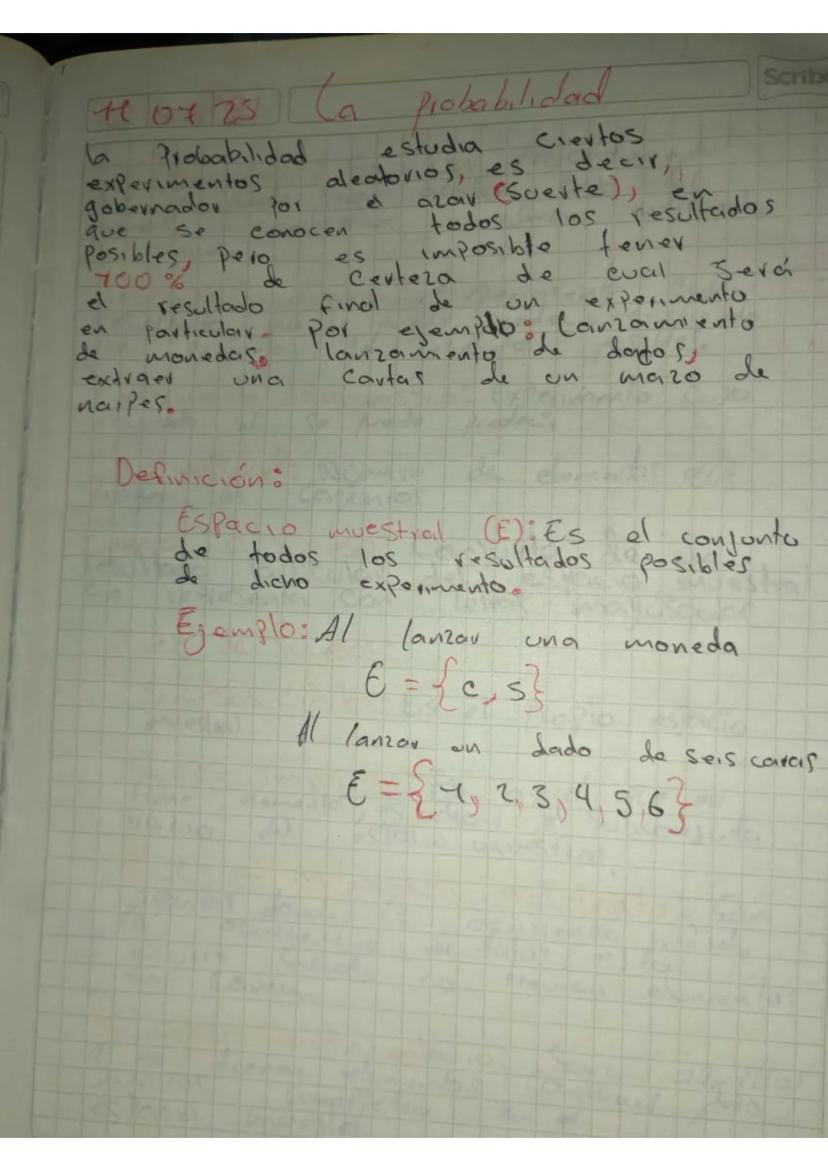 11 07 25 La probabilidad
Scribe
la Probabilidad estudia ciertos
experimentos aleatorios, es decir,
gobernador por el azar (suerte), en
que se conocen todos los resultados
posibles, pero es imposible tener
100% de certeza de cual será
el resultado final de un experimento
en particular. Por ejemplo: lanzamiento
de monedas, lanzamiento de dados,
extraer una cartas de un mazo de
naipes.
Definición:
Espacio muestral (E): Es el conjunto
de todos los resultados posibles
de dicho experimento.
Ejemplo: Al lanzar una moneda
E = {c, s}
Al lanzar un dado de seis caras
E = {1, 2, 3, 4, 5, 6}